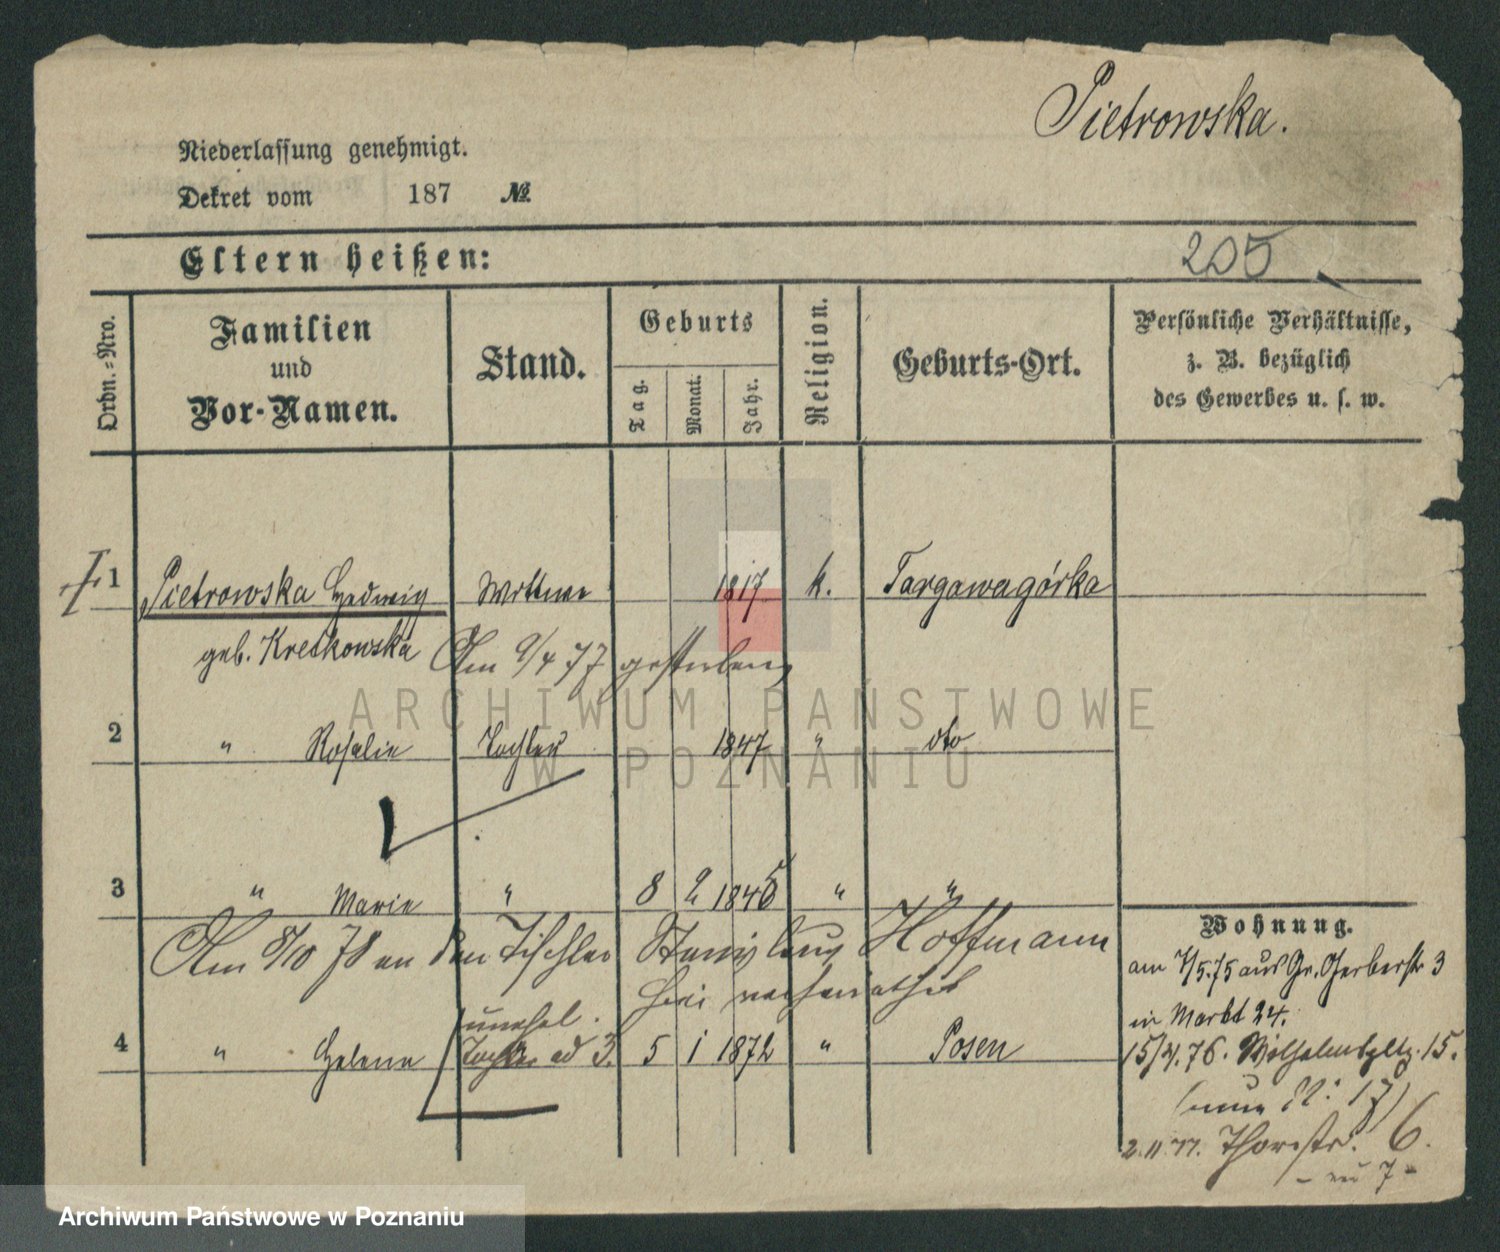 Pietrowska.
Niederlassung genehmigt.
Dekret vom 187 №
Eltern heißen:
205
Ordn.-Nro.
Familien
und
Vor-Namen.
Stand.
Geburts
Tag.
Monat.
Jahr.
Religion.
Geburts-Ort.
Persönliche Verhältnisse,
z. B. bezüglich
des Gewerbes u. s. w.
1 Pietrowska Hedwig Wittwe 1817 k. Targowagórka
geb. Kretkowska Am 9/4 77 gestorben
2 " Rosalie Tochter 1847 " dto
3 " Marie " 8 2 1845 " "
Am 8/10 78 an den Tischler Stanislaus Hoffmann
hier verheirathet
unehel.
4 " Helene Tochter ad 3. 5 1 1872 " Posen
Wohnung.
am 7/5.75 aus Gr. Gerberstr 3
in Markt 24.
15/4.76. Wilhelmspltz. 15.
(neue N: 17)
2.11.77. Thorstr. 6.
7
ARCHIWUM PAŃSTWOWE
W POZNANIU
Archiwum Państwowe w Poznaniu